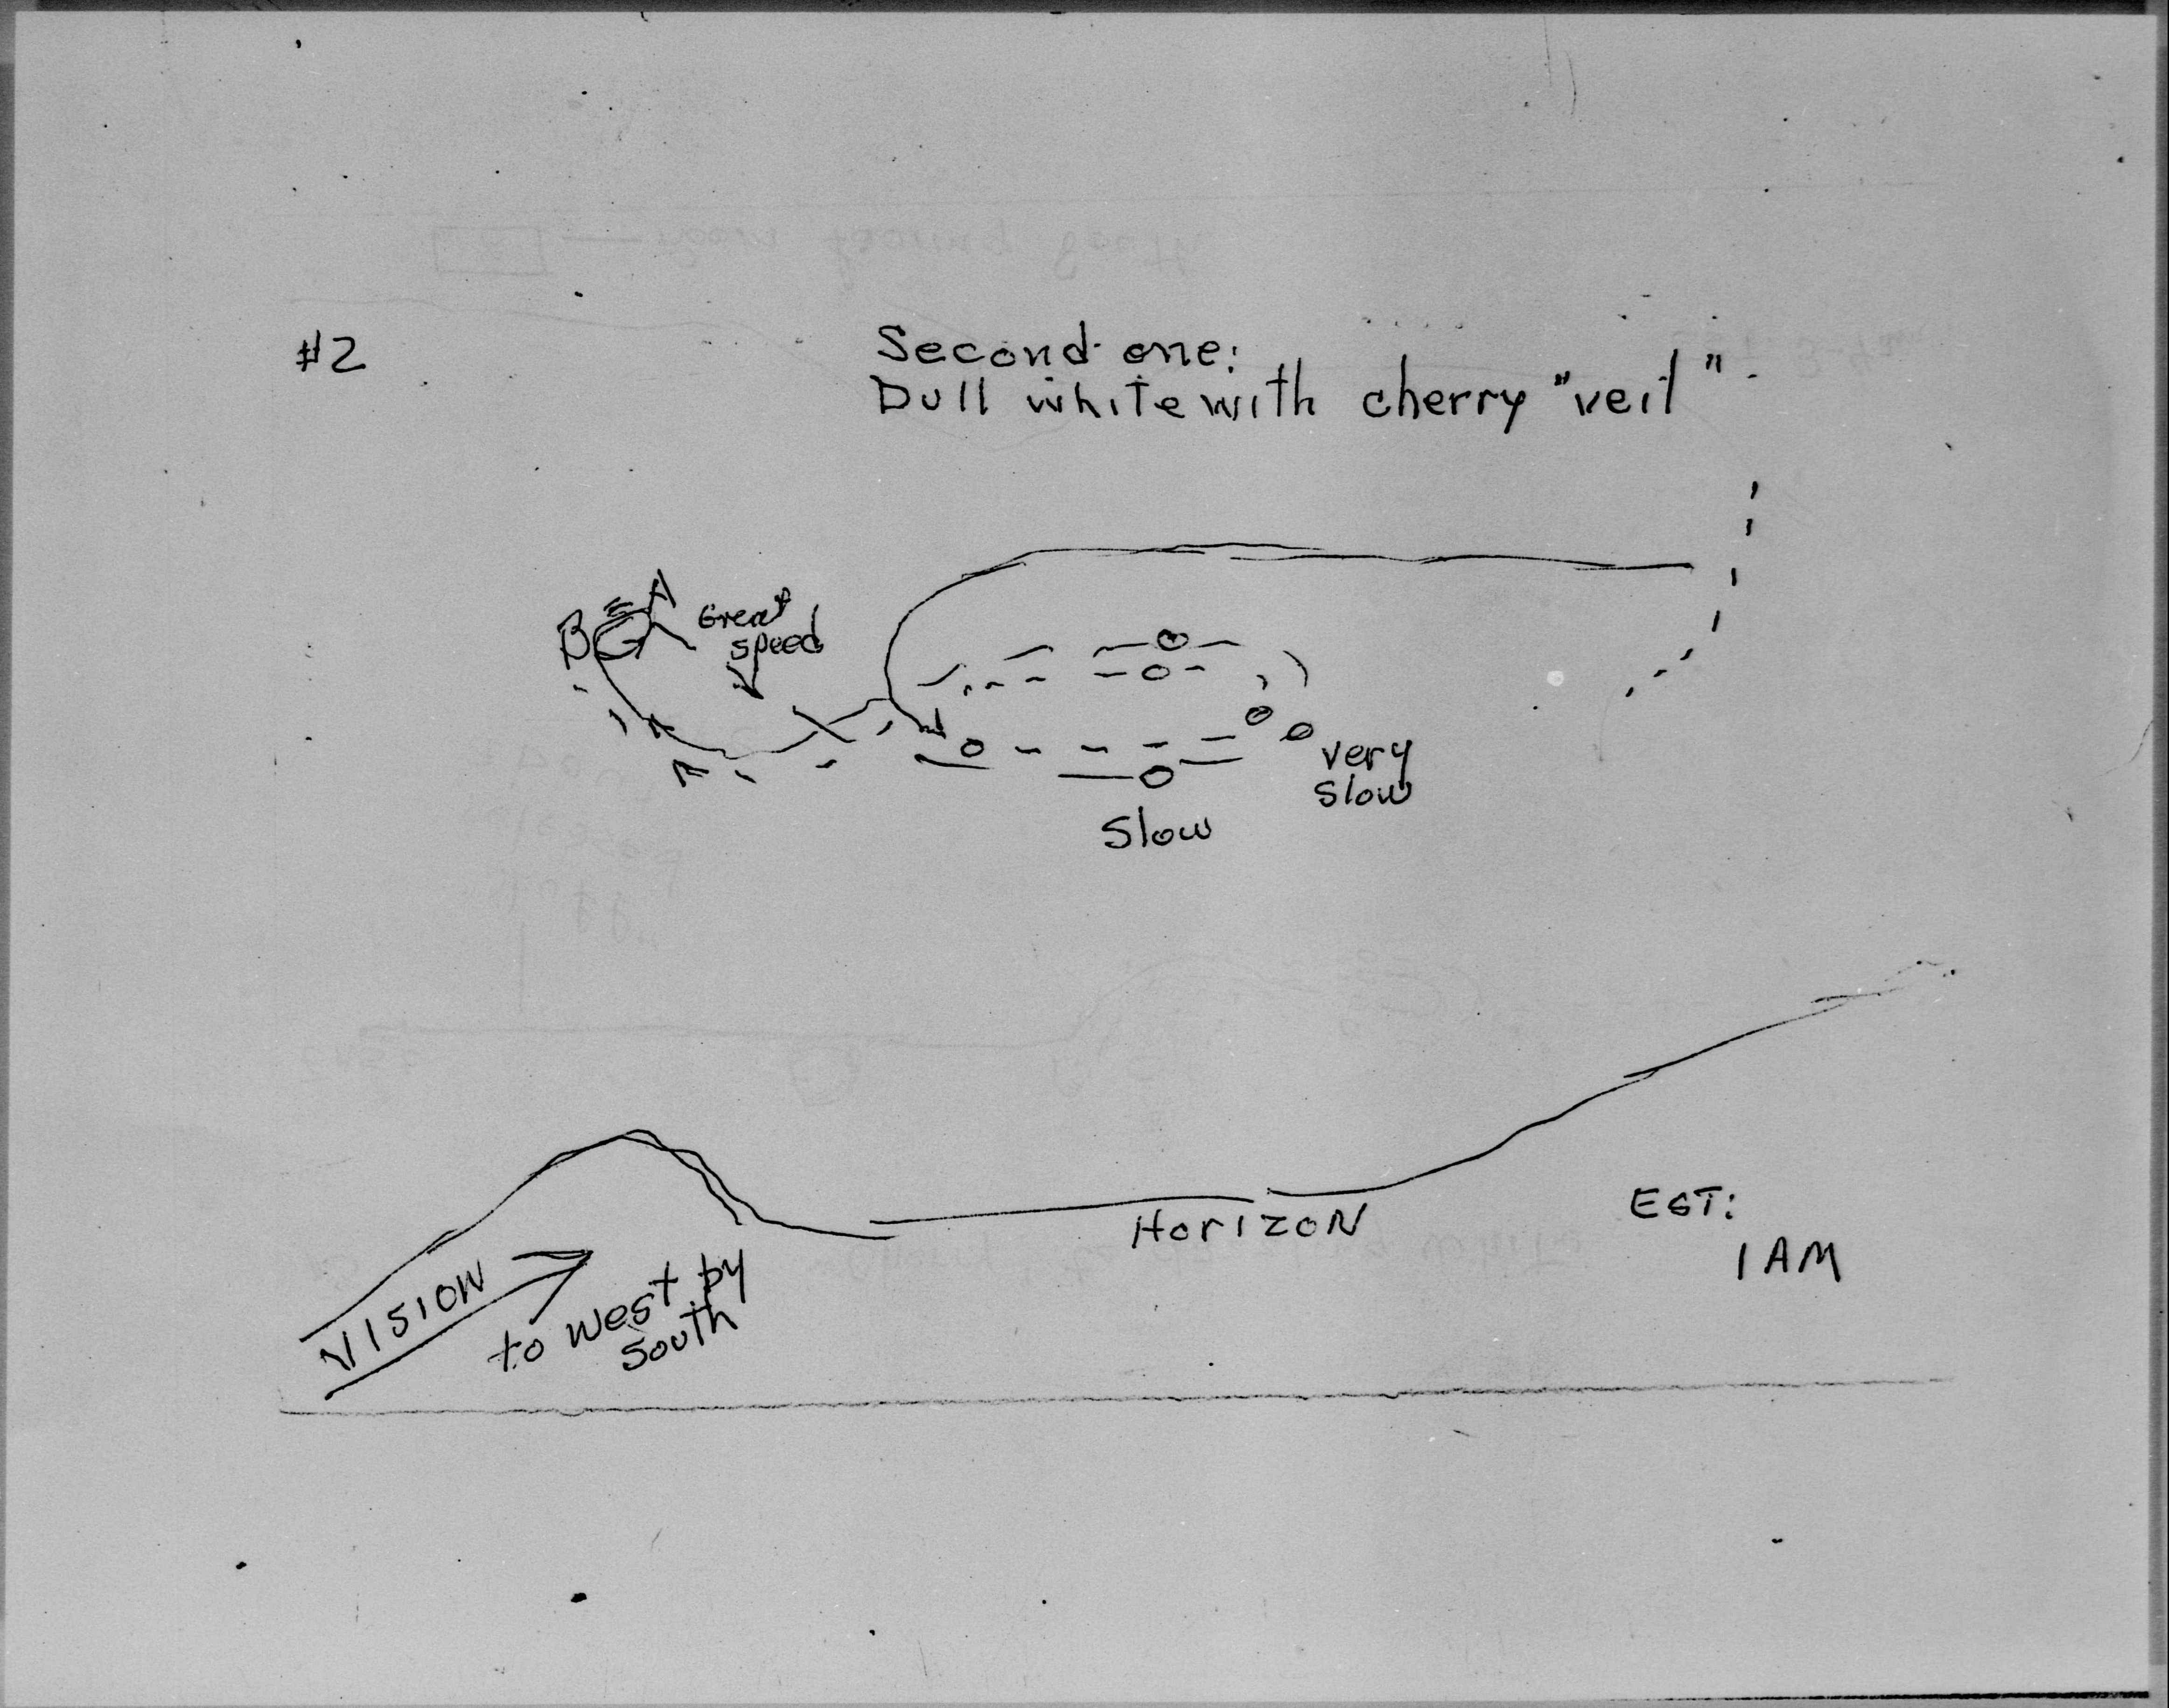 #2
Second one:
Dull white with cherry "veil".
A
B
Great
speed
very
slow
Slow
Horizon
EST:
1 AM
VISION
to west by
south